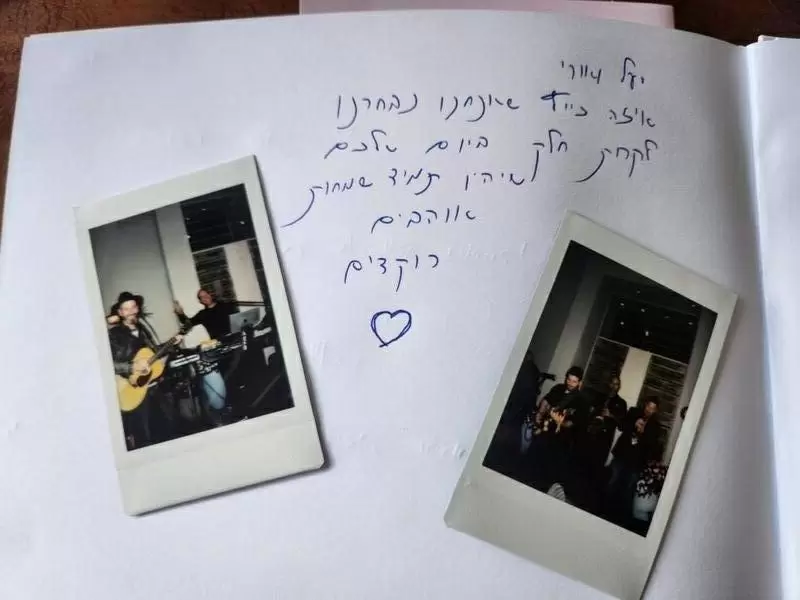 יעל ואורי
איזה כייף שאנחנו נבחרנו
לקחת חלק ביום שלכם
שיהיו תמיד שמחות
אוהבים
רוקדים